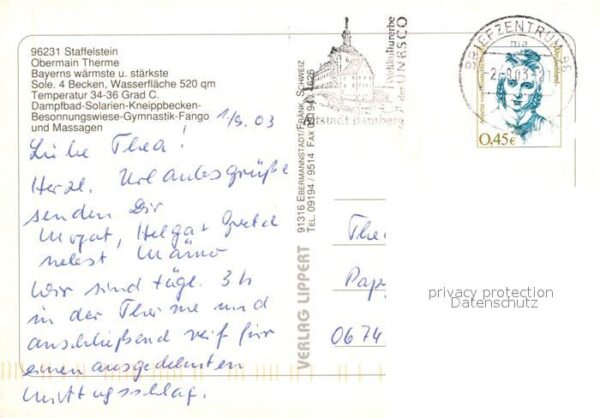 96231 Staffelstein
Obermain Therme
Bayerns wärmste u. stärkste
Sole. 4 Becken, Wasserfläche 520 qm
Temperatur 34-36 Grad C.
Dampfbad-Solarien-Kneippbecken-
Besonnungswiese-Gymnastik-Fango
und Massagen
1/9.03
Liebe Thea!
Herzl. Urlaubsgrüße
senden Dir
Helga + Gretel
nebst Männer
Wir sind tägl. 3h
in der Therme und
anschließend reif für
einen ausgedehnten
Mittagsschlaf.
VERLAG LIPPERT
91316 EBERMANNSTADT/FRÄNK. SCHWEIZ
TEL. 09194 / 9514 FAX 09194 / 4626
Weltkulturerbe
der UNESCO
Altstadt Bamberg
BRIEFZENTRUM 96
0,45€
Thea
Pape
0674
privacy protection
Datenschutz